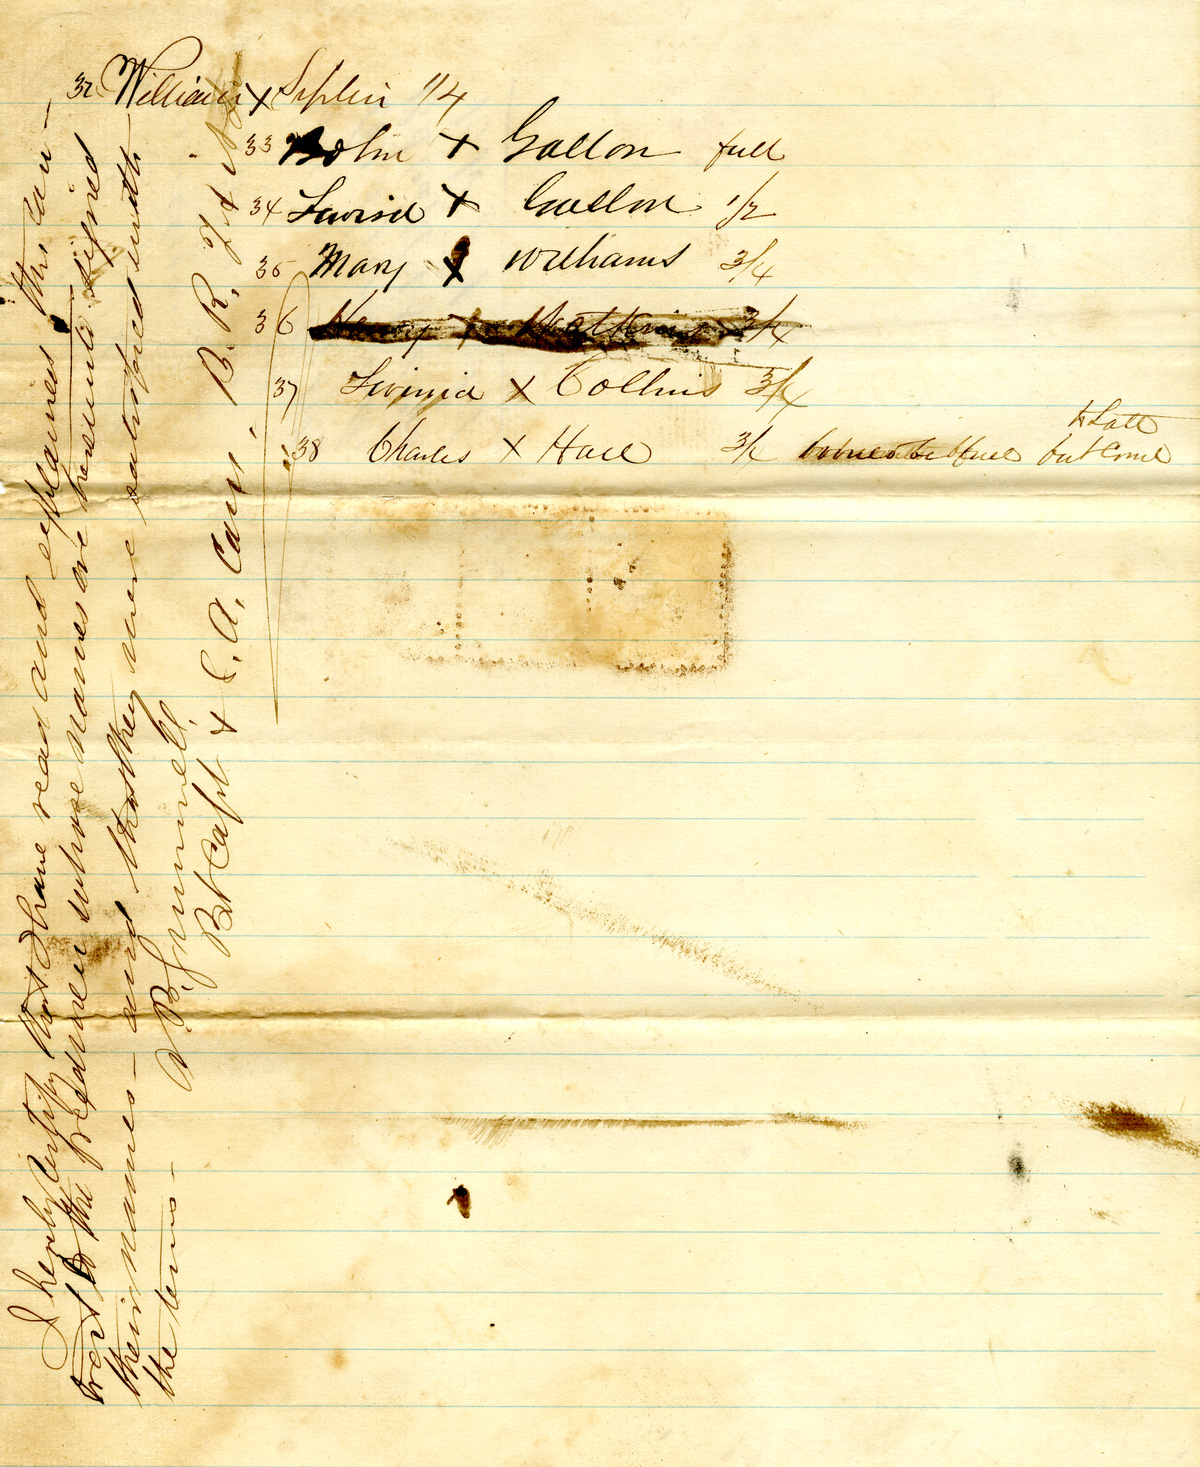 32 William X Siplin 1/4
33 John X Gallon full
34 Lavisa X Gallon 1/2
35 Mary X Williams 3/4
36 Henry X Watkins 3/4
37 Livinia X Collins 3/4
38 Charles X Hall 3/4 full but Come
to Late
I hereby certify that I have read and explained this Con-
tract to the freedmen whose names are hereunto signed
their names - and that they were satisfied with
the terms -
Grinnell
Bt Capt &
B. R. F. & A.